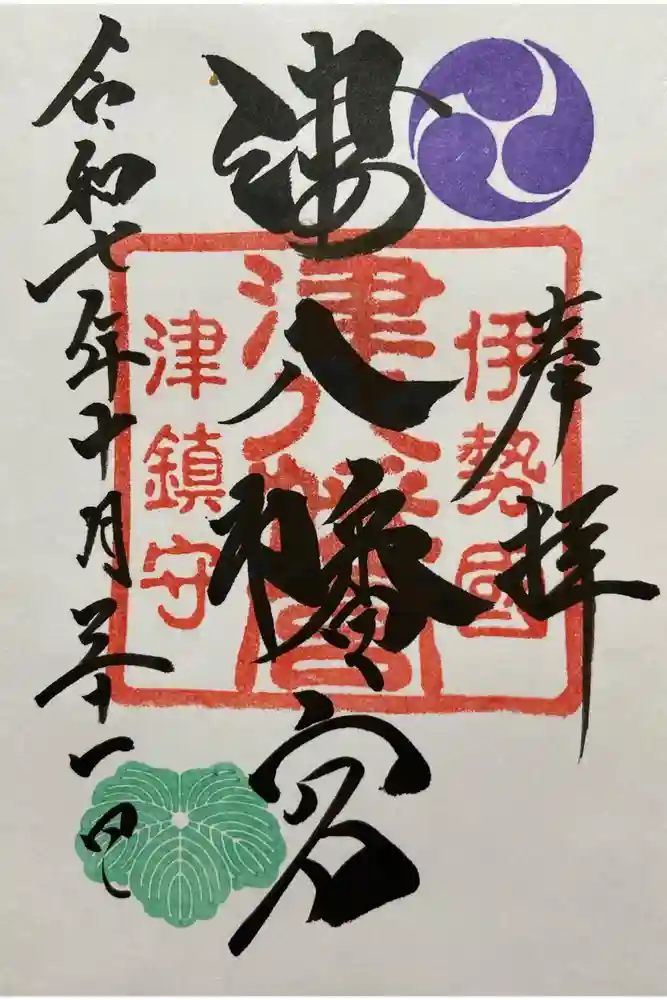 奉拝
伊勢國
津八幡宮
津八幡宮
津鎮守
令和七年十月三十一日